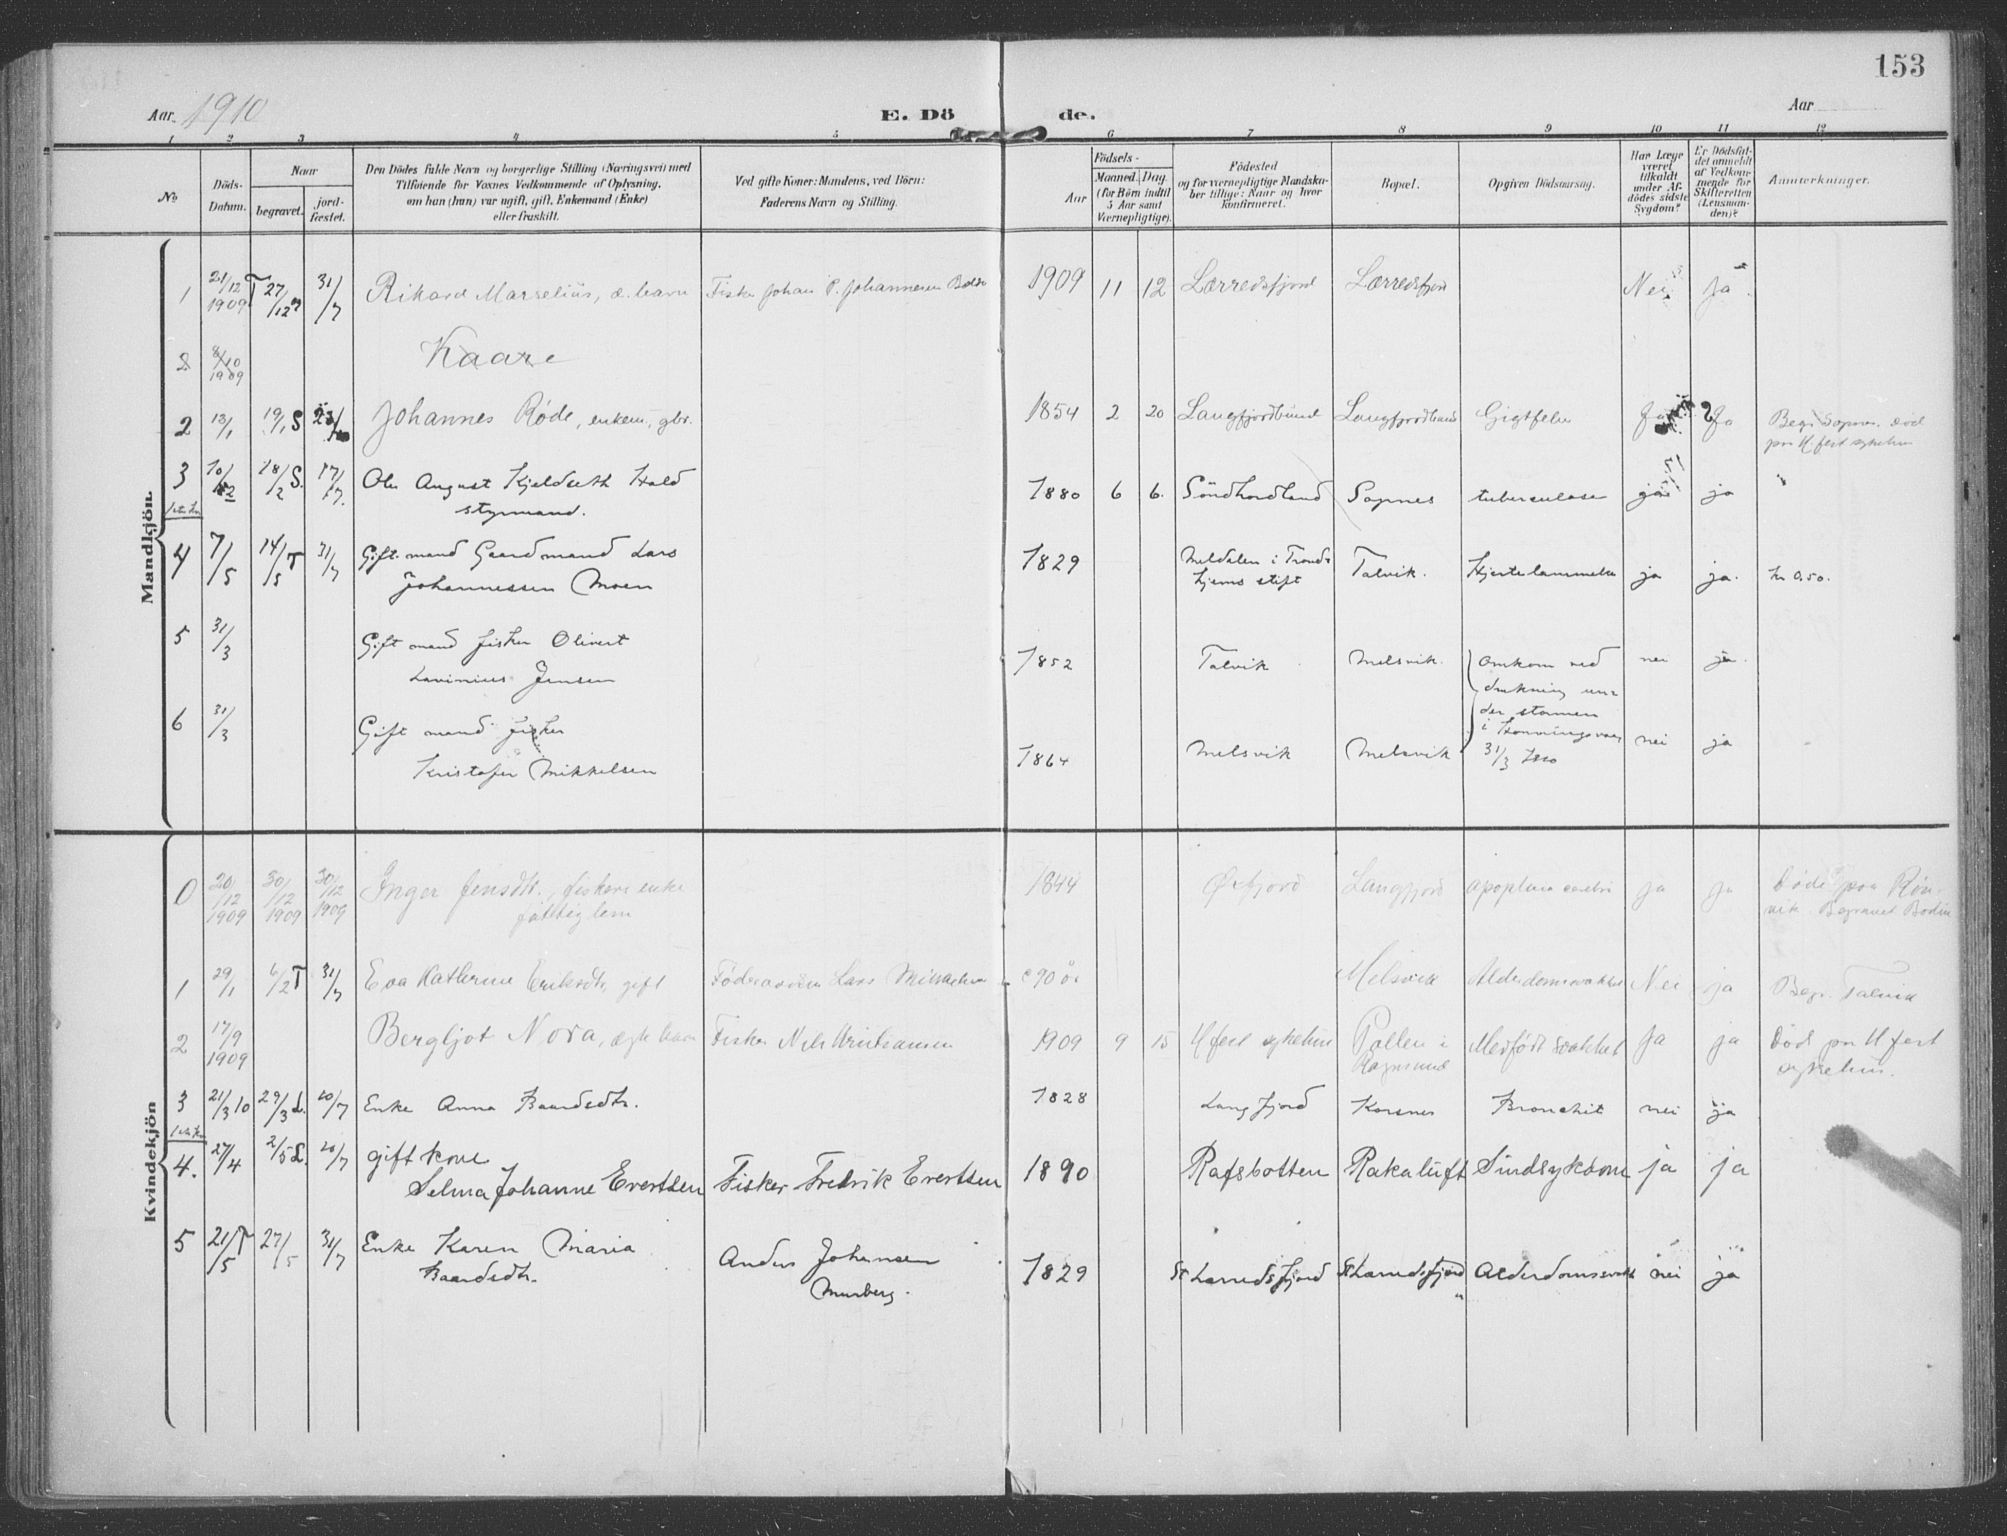 153
Aar 1910
E. Döde.
Aar
1 2 3 4 5 6 7 8 9 10 11 12
No
Döds-Datum.
Naar
begravet.
jord-fæstet.
Den Dödes fulde Navn og borgerlige Stilling (Næringsvei) med
Tilføiende for Voxnes Vedkommende af Oplysning,
om han (hun) var ugift, gift, Enkemand (Enke)
eller fraskilt.
Ved gifte Koner: Mandens, ved Börn:
Faderens Navn og Stilling.
Födsels-
Aar
Maaned. Dag.
(for Börn indtil
5 Aar samt
Værnepligtige).
Födested
og for værnepligtige Mandska-
ber tillige: Naar og hvor
konfirmeret.
Bopæl.
Opgiven Dödsaarsag.
Har Læge
været
tilkaldt
under Af-
dödes sidste
Sygdom?
Er Dödsfal-
det anmeldt
af Vedkom-
mende for
Skifteretten
(Lensman-
den)?
Anmerkninger.
Mandkjön.
1 21/12 1909 T 27/12 31/7 Rikard Marselius, æ. barn Fisker Johan P. Johannesen 1909 11 12 Lærredsfjord Lærredsfjord Nei Ja
2 8/10 1909 Kaare
2 13/1 19/1 S Johannes Røde, enkem, gbr. 1854 2 20 Langfjordbund Langfjordbund Gigtfeber Ja Ja Begr. Sopnes. død
paa H.fest sykehus
3 10/2 18/2 S. 17/7. Ole August Kjeldseth Hald
styrmand. 1880 6 6. Söndhordland Sopnes tuberculose ja ja "
4 7/5 14/5 T 31/7 Gift mand Gaardmand Lars
Johannessen Moen 1829 Meldalen i Trond-
hjems stift Talvik. Hjertelammelse ja ja. kr 0.50.
5 31/3 Gift mand fisker Olivert
Lavinius Jensen 1852 Talvik Melsvik. Omkom ved
drukning un-
der stormen
i Honningsvaag
31/3 1910 nei ja.
6 31/3 Gift mand fisker
Kristofer Mikkelsen 1864 Melsvik Melsvik nei ja
Kvindekjön
0 20/12 1909 30/12 1909 30/12 1909 Inger Jensdtr., fiskers enke
fattiglem 1844 Øxfjord Langfjord apoplexia cerebri ja ja Døde paa Røn-
vik. Begravet Bodin
1 29/1 6/2 T 31/7 Eva Katherine Eriksdtr, gift Föderaadsm Lars Mikkelsen c 90 år Melsvik Alderdomssvakhet Nei ja Begr. Talvik
2 17/9 1909 Bergljot Nora, ægte barn Fisker Nils Kristiansen 1909 9 15 H.fest sykehus Pollen i
Rognsund Medfødt svakhet Ja ja Död paa H.fest
sykehus.
3 21/3 10 29/3 L. 20/7 Enke Anna Baardsdtr. 1828 Langfjord Korsnes Bronchit nei ja
4. 27/4 2/5 L. 20/7 gift kone
Selma Johanne Evertsen Fisker Fredrik Evertsen 1890 Rafsbotten Rakaluft Sindsykdom ja ja
5 21/5 T 27/5 31/7 Enke Karen Maria
Baardsdtr. Anders Johansen
Murberg. 1829 St Lærredsfjord St Lærredsfjord Alderdomssvakh nei ja